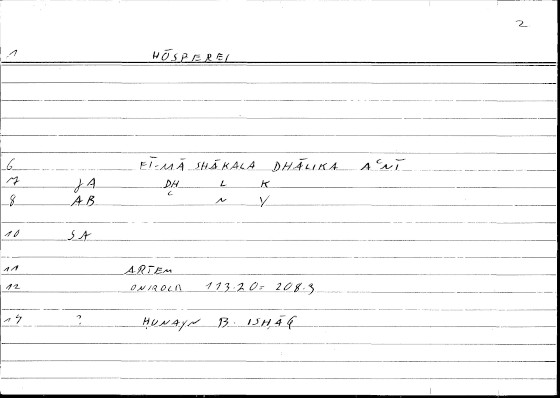 2
1 HŌSPEREI
6 FĪ-MĀ SHĀKALA DHĀLIKA AʿNĪ
7 JA DH L K
8 AB ʿ N Y
10 SA
11 ARTEM
12 ONIROCR 113.20 = 208.3
14 ? ḤUNAYN B. ISḤĀQ